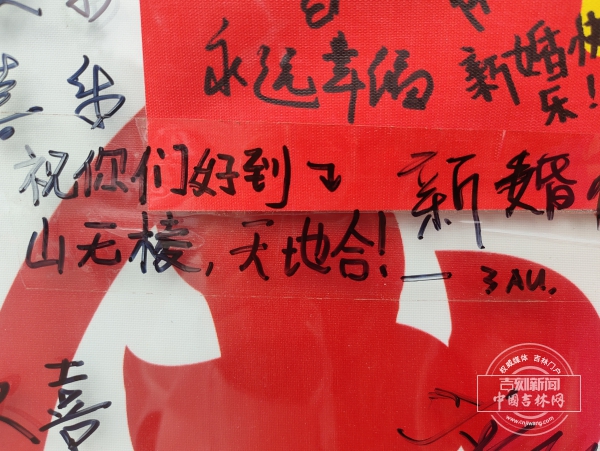 永远幸福
新婚快
乐！
祝你们好到↴
新婚
山无棱，天地合！— 3AU.
喜
权威媒体 吉林门户
吉刻新闻
中国吉林网
www.cnjiwang.com